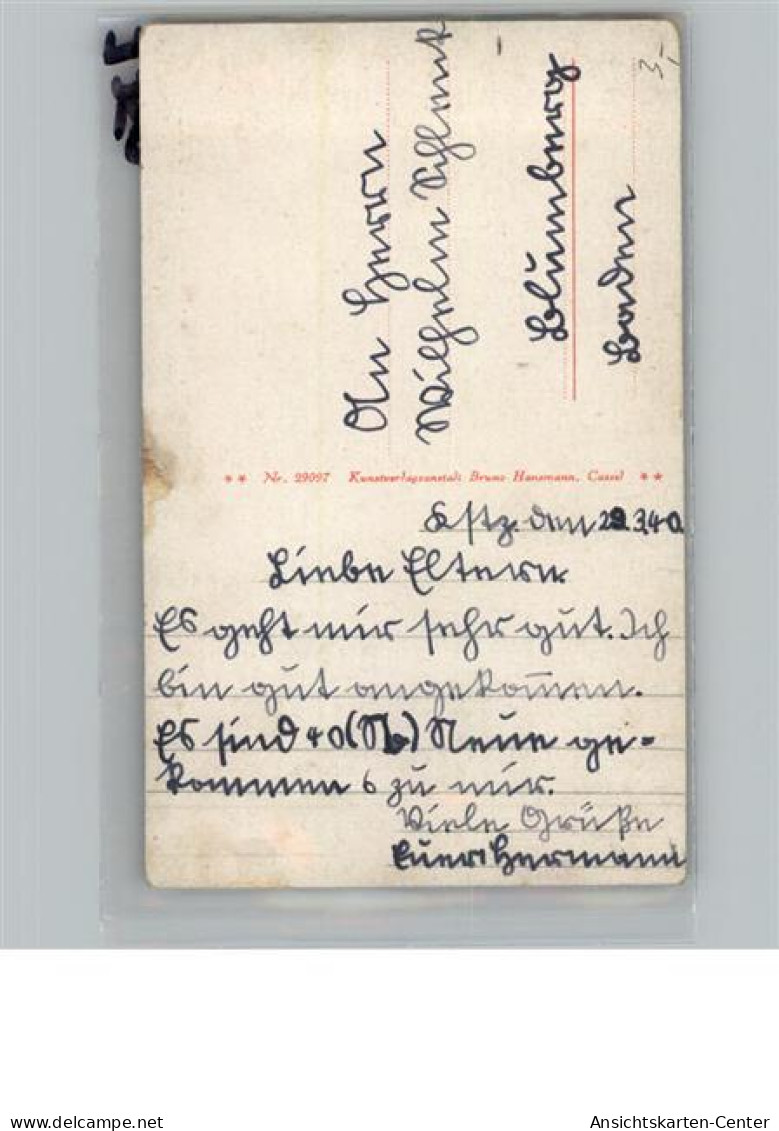 3,-
An Herrn
Wilhelm Schenk
Blumberg
Baden
** Nr. 29097 Kunstverlagsanstalt Bruno Hansmann, Cassel **
Kstz. den 29.3.40
Liebe Eltern
Es geht mir sehr gut. Ich
bin gut angekom̅en.
Es sind 40 Neue ge-
kommen 6 zu mir.
Viele Grüße
Euer Hermann
delcampe.net
Ansichtskarten-Center